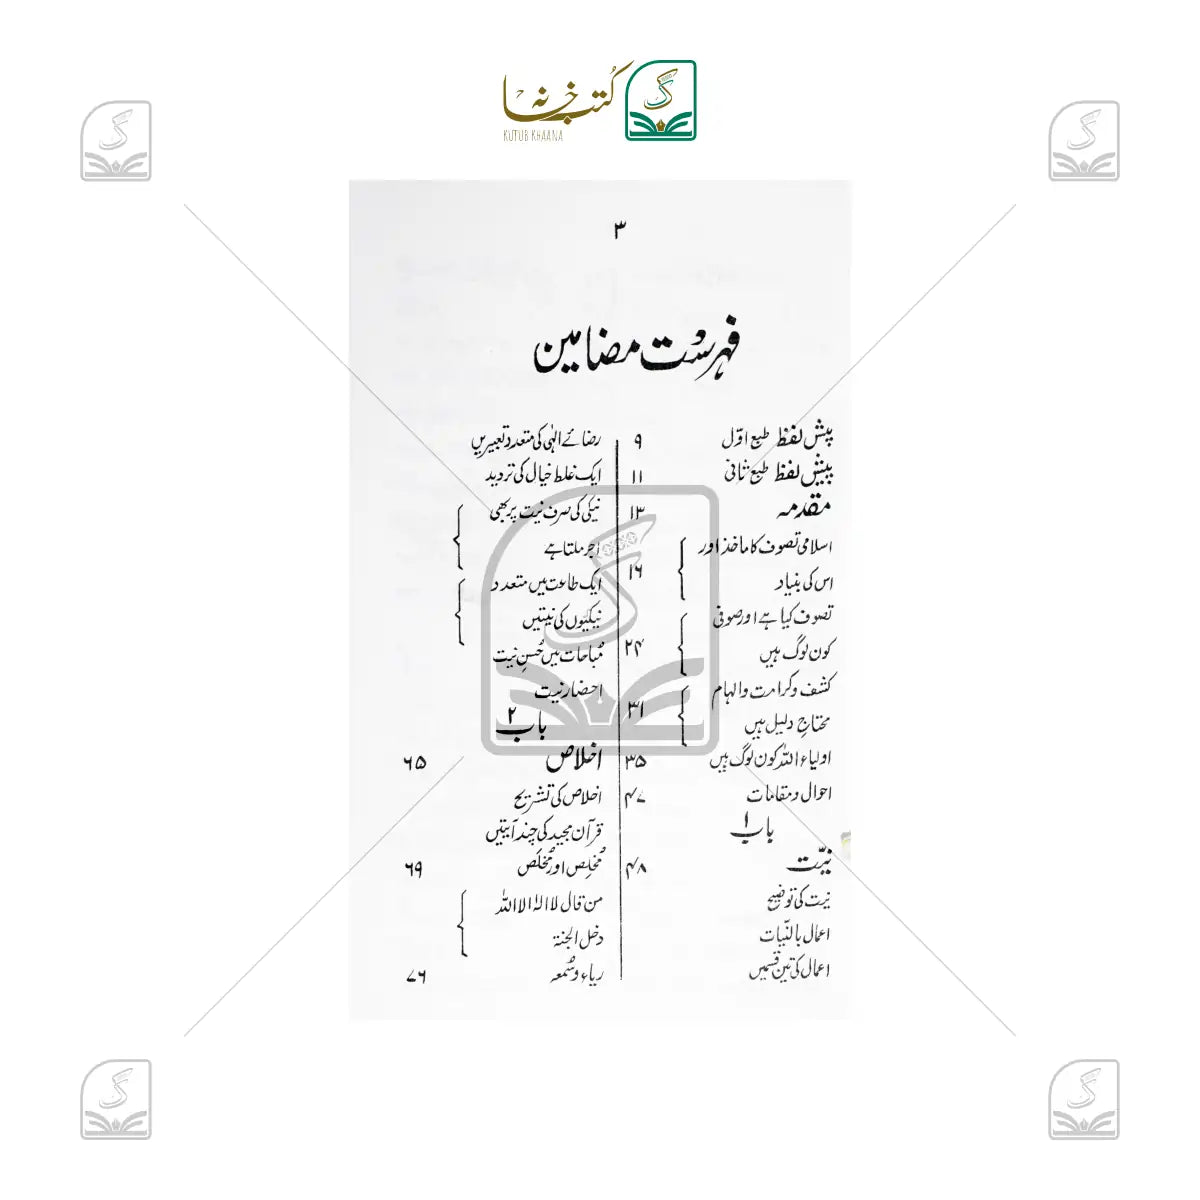 کتب خانہ
KUTUB KHAANA
۳
فہرست مضامین
پیش لفظ طبع اوّل ۹
پیش لفظ طبع ثانی ۱۱
مقدمہ ۱۳
اسلامی تصوف کا ماخذ اور
اس کی بنیاد ۱۶
تصوف کیا ہے اور صوفی
کون لوگ ہیں ۲۴
کشف و کرامت و الہام
محتاجِ دلیل ہیں ۳۱
اولیاء اللہ کون لوگ ہیں ۳۵
احوال و مقامات ۴۷
باب ۱
نیّت ۴۸
نیت کی توضیح
اعمال بالنّیات
اعمال کی تین قسمیں
رضائے الٰہی کی متعدد تعبیریں
ایک غلط خیال کی تردید
نیکی کی صرف نیت پر بھی
اجر ملتا ہے
ایک طاعت میں متعدد
نیکیوں کی نیتیں
مُباحات میں حُسنِ نیت
احضارِ نیت
باب ۲
اخلاص ۶۵
اخلاص کی تشریح
قرآن مجید کی چند آیتیں
مُخلِص اور مُخلَص ۶۹
من قال لا الٰہ الا اللہ
دخل الجنۃ
ریاء و سُمعہ ۷۶